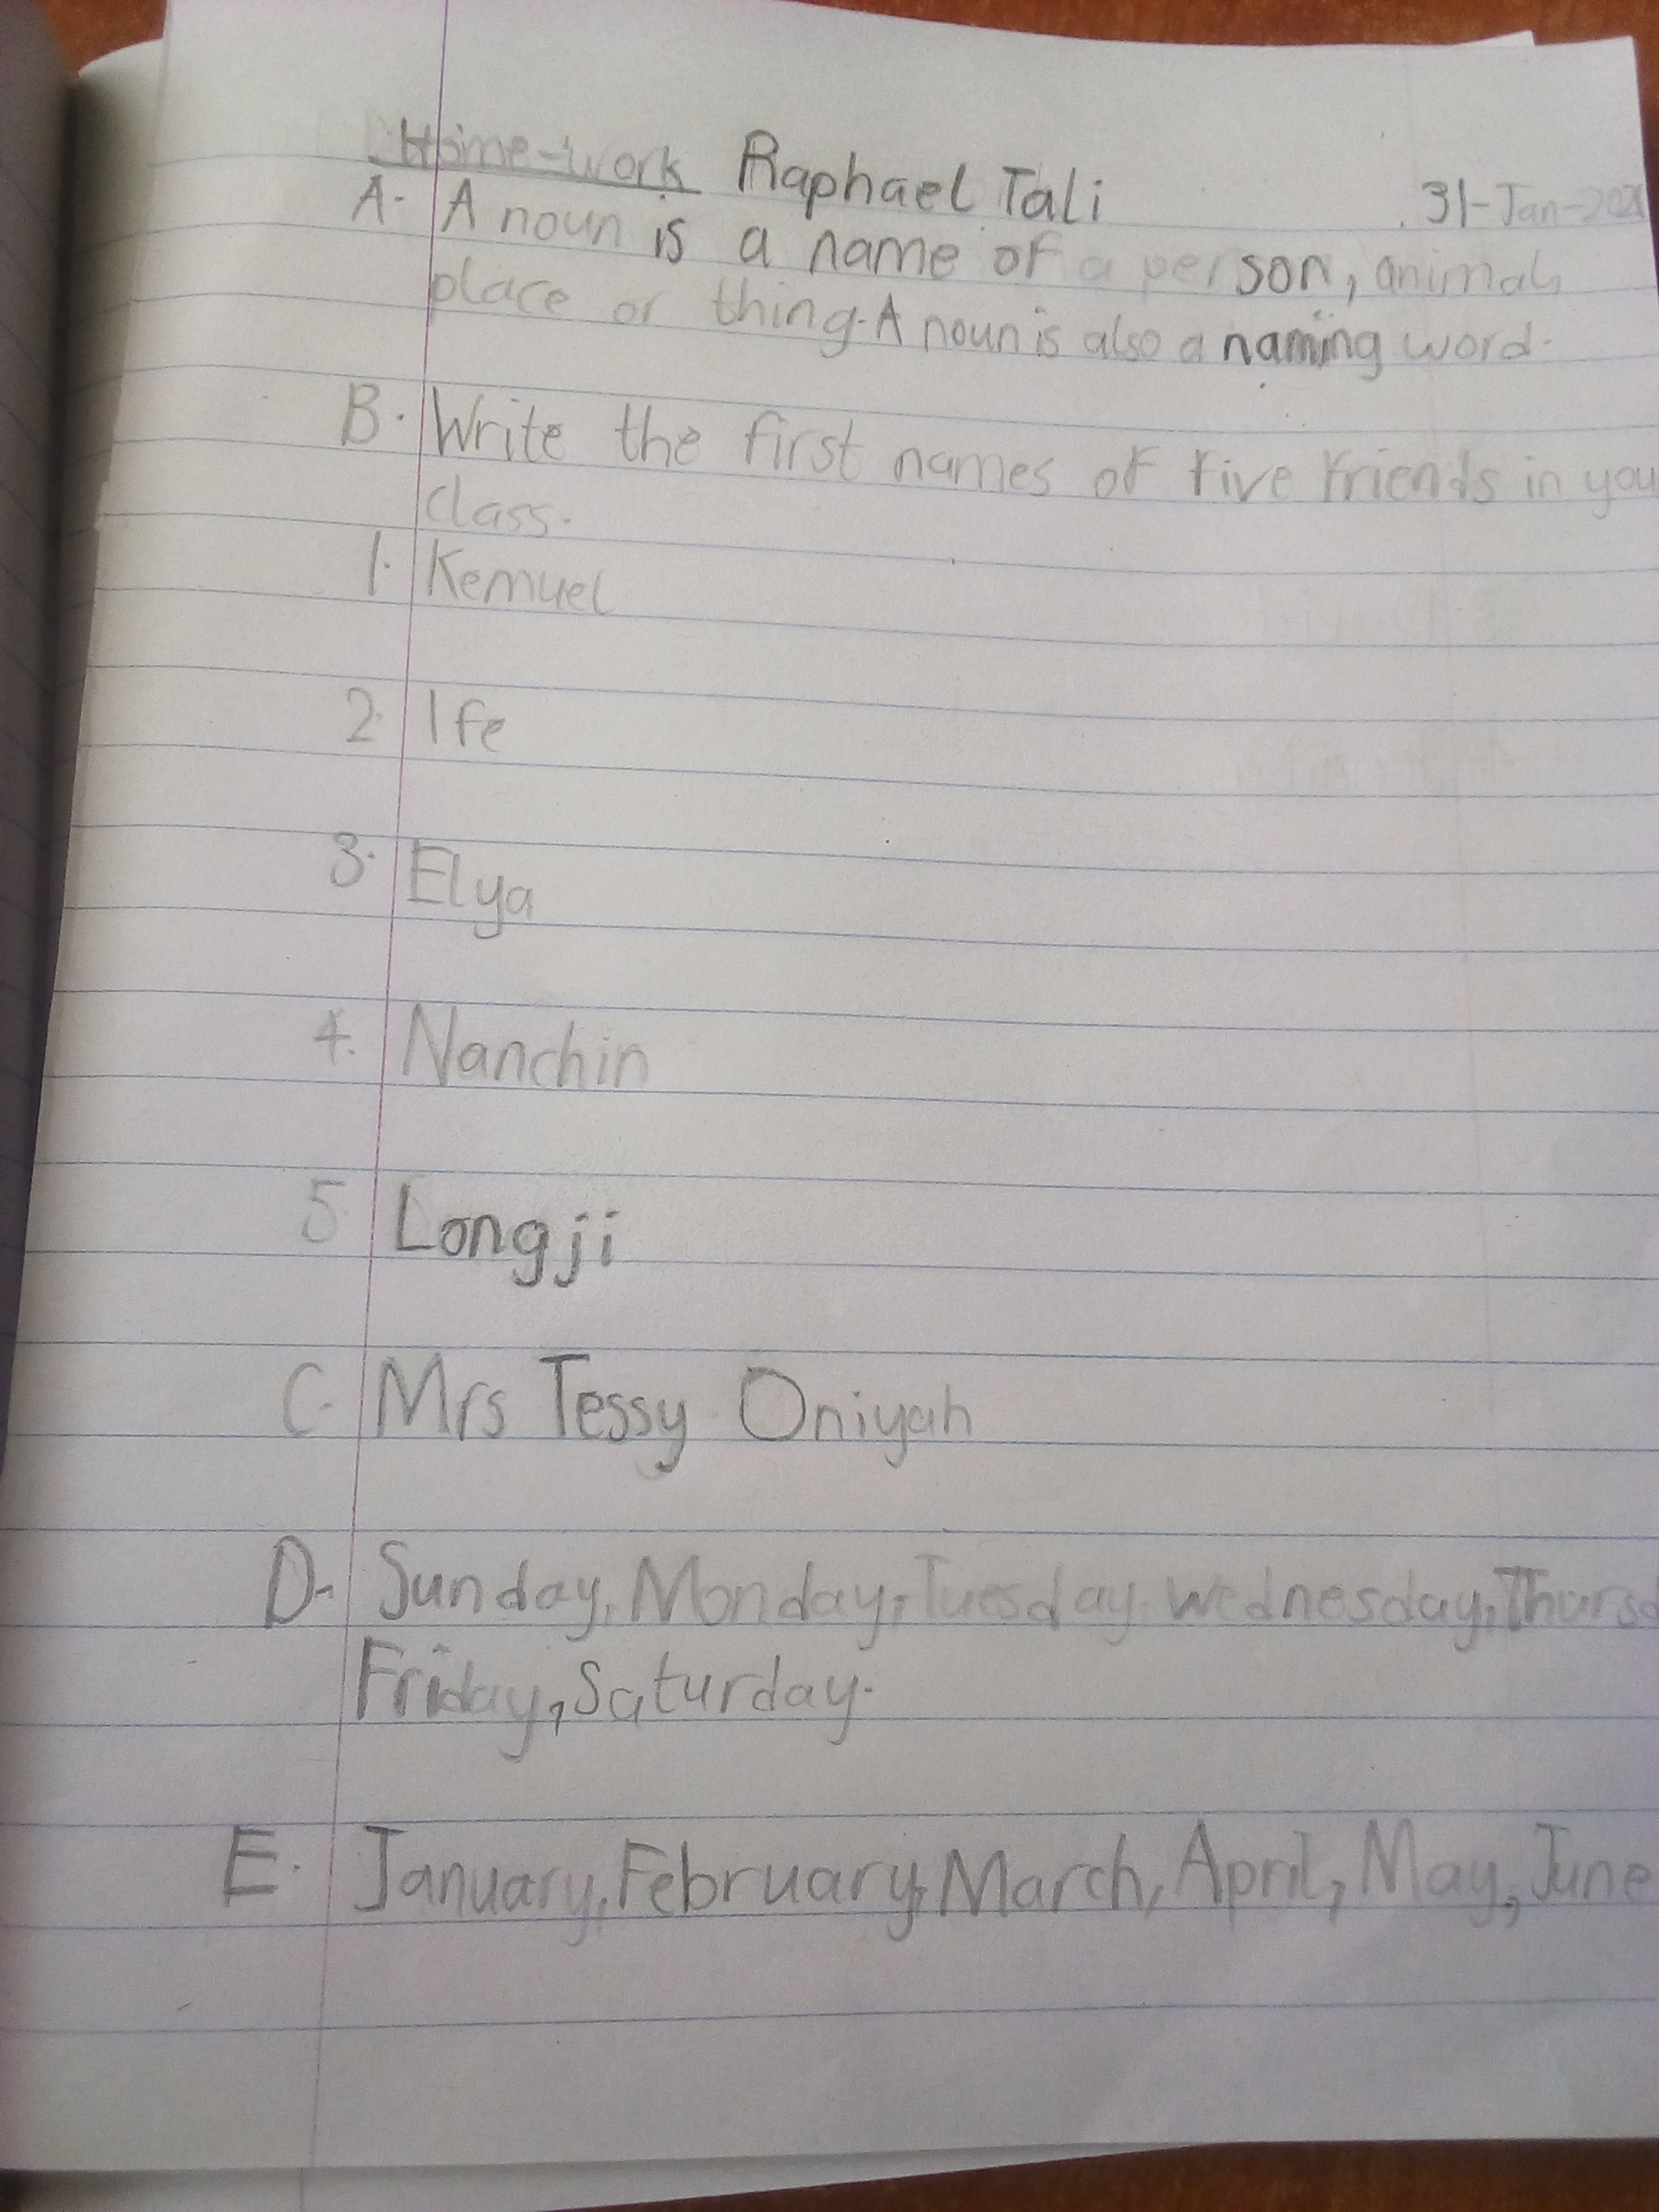 Home-work Raphael Tali 31-Jan-202
A. A noun is a name of a person, animal,
place or thing. A noun is also a naming word.
B. Write the first names of five friends in you
class.
1. Kemuel
2. Ife
3. Elya
4. Nanchin
5. Longji
C. Mrs Tessy Oniyah
D. Sunday, Monday, Tuesday. Wednesday, Thursd
Friday, Saturday.
E. January, February, March, April, May, June